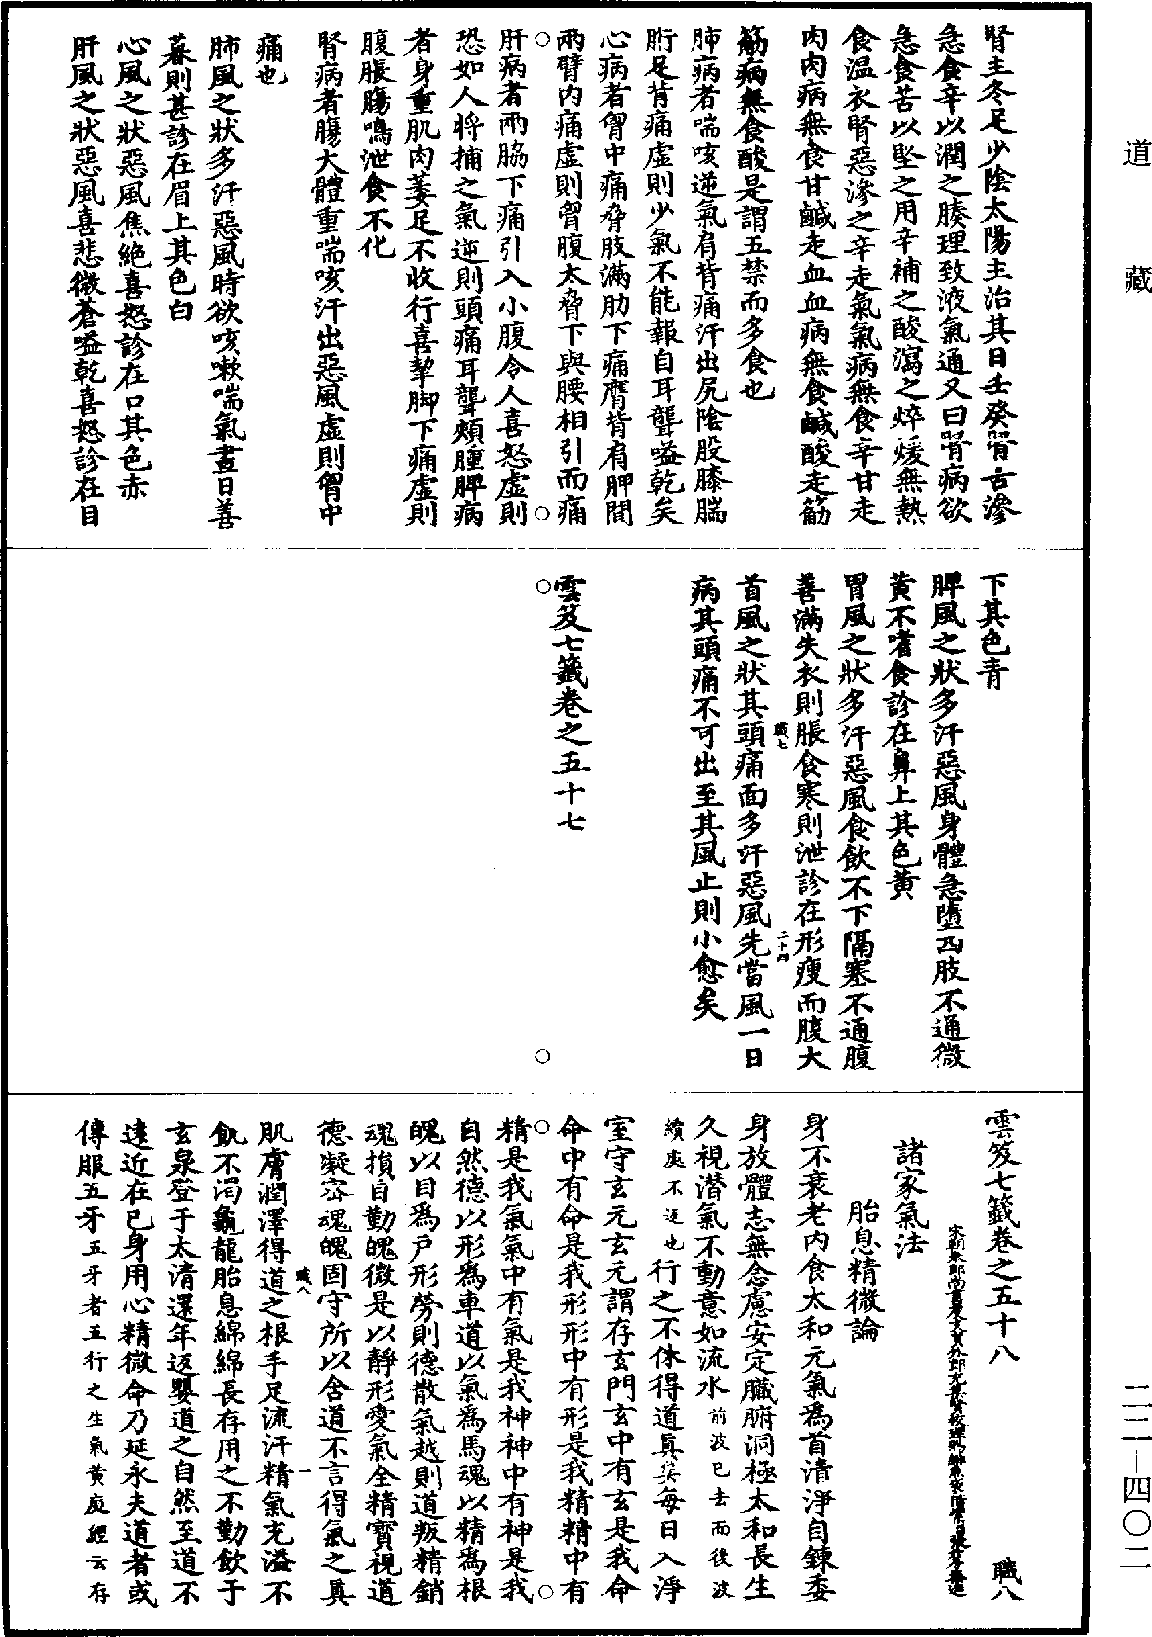 道藏
腎主冬足少陰太陽主治其日壬癸腎古滲
急食辛以潤之腠理致液氣通又曰腎病欲
急食苦以堅之用辛補之酸瀉之焠煖無熱
食温衣腎惡滲之辛走氣氣病無食辛甘走
肉肉病無食甘鹹走血血病無食鹹酸走筋
筋病無食酸是謂五禁而多食也
肺病者喘咳逆氣肩背痛汗出尻陰股膝腨
胻足背痛虛則少氣不能報自耳聾嗌乾矣
心病者胷中痛脅肢滿肋下痛膺背肩胛間
兩臂內痛虛則胷腹太脅下與腰相引而痛
肝病者兩脇下痛引入小腹令人喜怒虛則
恐如人將捕之氣逆則頭痛耳聾頰腫脾病
者身重肌肉萎足不收行喜掣脚下痛虛則
腹脹腸鳴泄食不化
腎病者腸大體重喘咳汗出惡風虛則胷中
痛也
肺風之狀多汗惡風時欲咳嗽喘氣晝日善
暮則甚診在眉上其色白
心風之狀惡風焦絶喜怒診在口其色赤
肝風之狀惡風喜悲微蒼嗌乾喜怒診在目
下其色青
脾風之狀多汗惡風身體急墮四肢不通微
黃不嗜食診在鼻上其色黃
胃風之狀多汗惡風食飲不下隔塞不通腹
善滿失衣則脹食寒則泄診在形瘦而腹大
職七 二十四
首風之狀其頭痛面多汗惡風先當風一日
病其頭痛不可出至其風止則小愈矣
雲笈七籤卷之五十七
雲笈七籤卷之五十八 職八
諸家氣法
胎息精微論
身不衰老內食太和元氣爲首清淨自鍊委
身放體志無念慮安定臟腑洞極太和長生
久視潛氣不動意如流水前波已去而後波
續處不返也行之不休得道真矣每日入淨
室守玄元玄元謂存玄門玄中有玄是我命
命中有命是我形形中有形是我精精中有
精是我氣氣中有氣是我神神中有神是我
自然德以形爲車道以氣爲馬魂以精爲根
魄以目爲戶形勞則德散氣越則道叛精銷
魂損目勤魄微是以靜形愛氣全精寶視道
德凝宻魂魄固守所以含道不言得氣之真
職八 一
肌膚潤澤得道之根手足流汗精氣充溢不
飢不渴龜龍胎息綿綿長存用之不勤飲于
玄泉登于太清還年返嬰道之自然至道不
遠近在已身用心精微命乃延永夫道者或
傳服五牙五牙者五行之生氣黃庭經云存
二二—四〇二